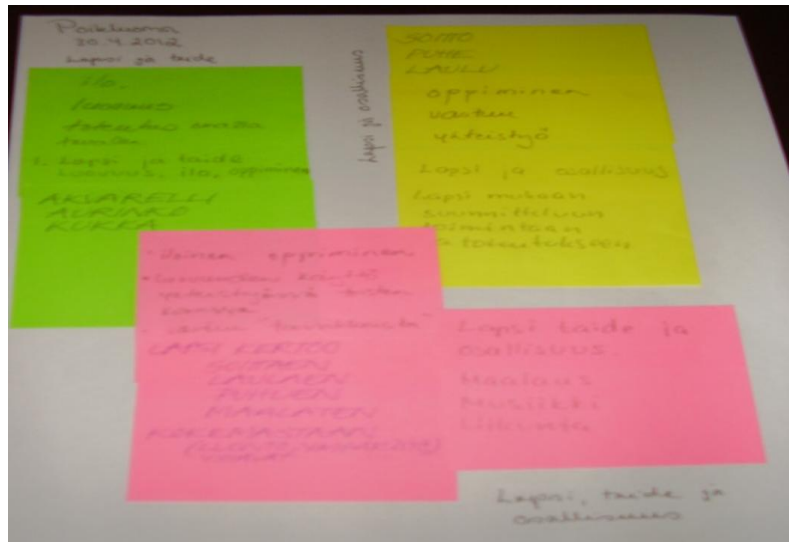 Poikluoma
30.4.2012
Lapsi ja taide
ilo,
luovuus
toteutus omalla
tavalla
1. Lapsi ja taide
Luovuus, ilo, oppiminen
AKVARELLI
AURINKO
KUKKA
Lapsi ja osallisuus
SOITTO
PUHE
LAULU
oppiminen
vastuu
yhteistyö
Lapsi ja osallisuus
Lapsi mukaan
suunnitteluun
toimintaan
ja toteutukseen
oppiminen
yhteistyössä toisten
kanssa
LAPSI KERTOO
SOITTAEN
LAULAEN
PUHUEN
MAALATEN
KOKEMUKSIAAN
Lapsi taide ja
osallisuus.
Maalaus
Musiikki
Liikunta
Lapsi, taide ja
osallisuus